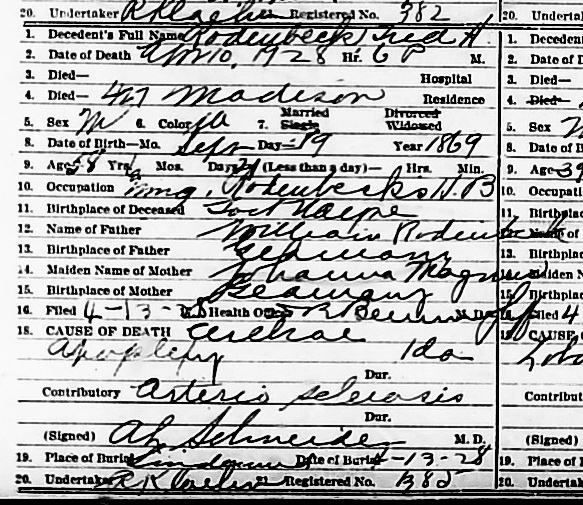 20. Undertaker Registered No. 382 20. Undertak
1. Decedent's Full Name Rodenbeck, Fred H. 1. Decedent
2. Date of Death Apr 10, 1928 Hr. 6 P M. 2. Date of D
3. Died— Hospital 3. Died—
4. Died— 427 Madison Residence 4. Died—
5. Sex M 6. Color W 7. Married Single Divorced Widowed 5. Sex
8. Date of Birth—Mo. Sept Day—19 Year 1869 8. Date of B
9. Age 58 Yrs. Mos. Days 21 (Less than a day)— Hrs. Min. 9. Age 39
10. Occupation Mng. Rodenbecks H. B 10. Occupati
11. Birthplace of Deceased Fort Wayne 11. Birthplac
12. Name of Father William Rodenbeck of
13. Birthplace of Father Germany 13. Birthpla
14. Maiden Name of Mother Johanna Magnus aiden N
15. Birthplace of Mother Germany 15. Birthpla
16. Filed 4-13-28 Health M. D. Filed 4
18. CAUSE OF DEATH Cerebral CAUSE
Apoplexy 1da
Dur.
Contributory Arterio sclerosis Contribut
Dur.
(Signed) Schneider M. D. (Signed)
19. Place of Burial Lindenwood Date of Burial 4-13-28 19. Place of
20. Undertaker 21. Registered No. 385 20. Undertak